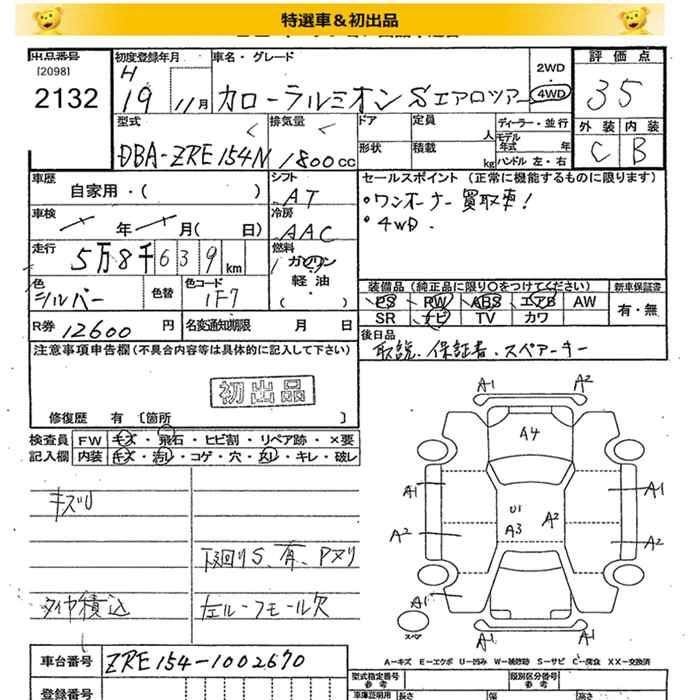 特選車＆初出品
出品番号
[2098]
2132
初度登録年月
H
19 11月
車名・グレード
カローラルミオン Sエアロツアー
2WD
4WD
評価点
35
外装 内装
C B
型式
DBA-ZRE154N
排気量
1800cc
ドア
定員
人
ディーラー・並行
モデル年式
年
形状
積載
kg
ハンドル 左・右
車歴
自家用・(　)
シフト
AT
セールスポイント (正常に機能するものに限ります)
・ワンオーナー買取車!
・4WD.
車検
年 月( 日)
冷房
AAC
走行
5万8千639km
燃料
ガソリン
軽油
(・)
色
シルバー
色替
色コード
1F7
装備品 (純正品に限り○をつけてください)
新車保証書
PS PW ABS エアB AW
有・無
SR ナビ TV カワ
R券 12600円
名変通知期限 月 日
後日品
取説、保証書、スペアーキー
注意事項申告欄 (不具合内容等は具体的に記入して下さい)
初出品
修復歴 有 [箇所 ]
検査員 FW キズ・飛石・ヒビ割・リペア跡・×要
記入欄 内装 キズ・汚レ・コゲ・穴・スレ・キレ・破レ
キズU
下回りS、有、Pヌリ
タイヤ積込
左ルーフモール欠
A1 A2
A4
A1 A1
U1
A3 A2
A2 A2
A1 A1
スペア
A1 A1
車台番号 ZRE154-1002670
A…キズ E…エクボ U…凹み W…補修跡 S…サビ C…腐食 XX…交換済
型式指定番号
参考
類別区分番号
参考
登録番号
車庫証明用
長さ
幅
高さ